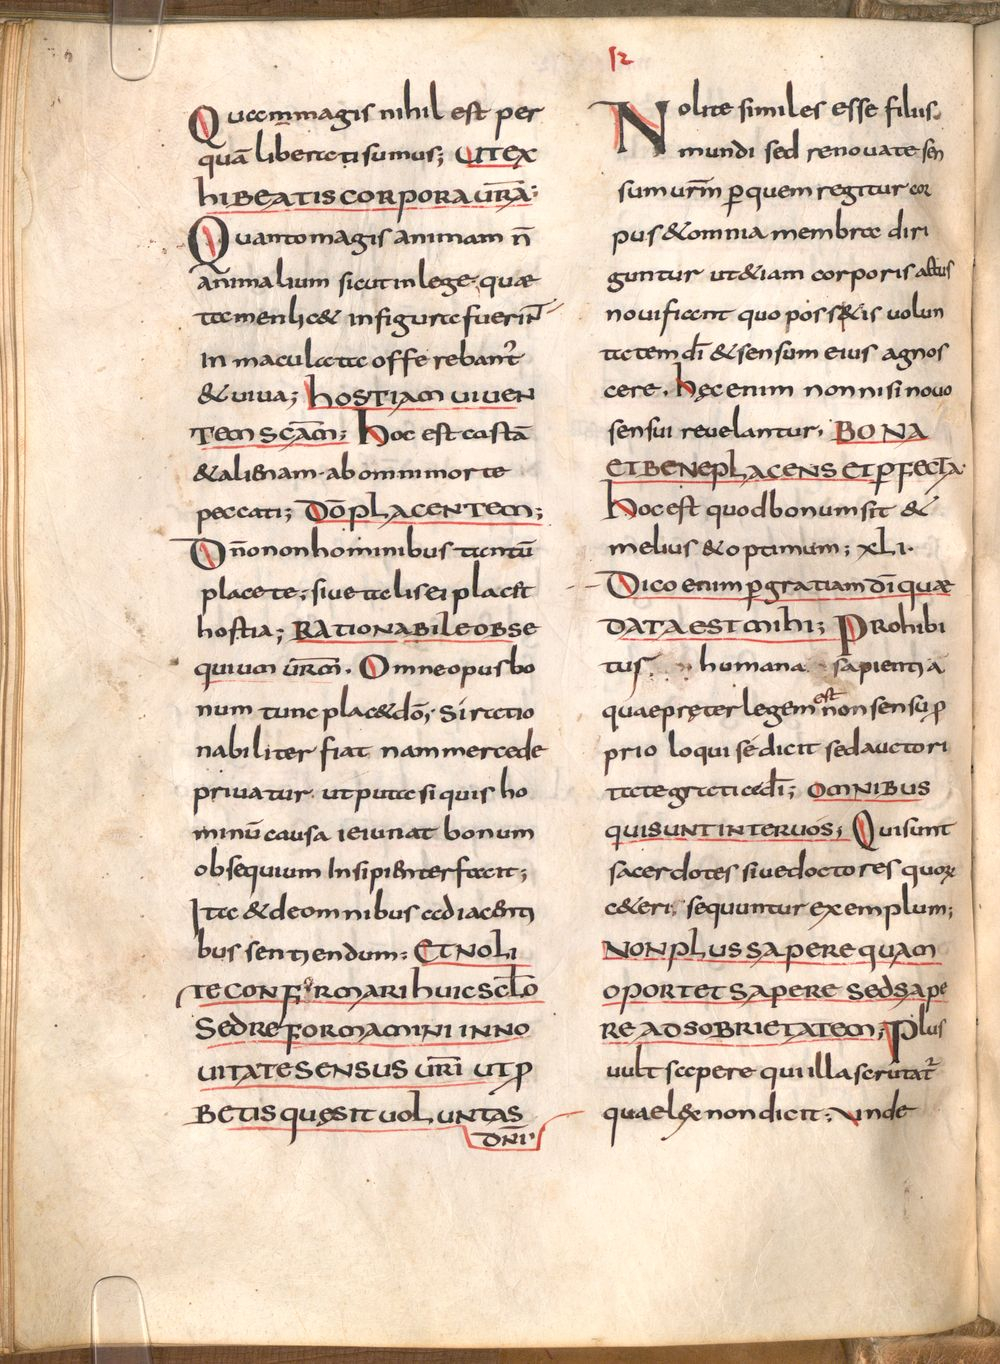 12
Quam magis nihil est per
quā liberati sumus; UT EX
HIBEATIS CORPORA ŪRA:
Quanto magis animam n̄
animalium sicut in lege quae
tamen haec & in figura fuerint
Inmaculata offerebant̉
& uiua; HOSTIAM VIVEN
TEM SC̄AM; Hoc est castā
& alienam ab omni morte
peccati; DŌ PLACENTEM;
Dn̄o non hominibus tantū
placete; siue talis ei placet
hostia; RATIONABILE OBSE
QUIUM ŪRM̄. Omne opus bo
num tunc plac& dō, si ratio
nabiliter fiat nam mercede
priuatur ut puta si quis ho
minū causa ieiunat bonum
obsequium Insipienter facit;
Ita & de omnibus adiacenti
bus sentiendum: ET NOLI
TE CONFORMARI HUIC SCL̄O
SED REFORMAMINI IN NO
UITATE SENSUS ŪRI UT P
BETIS QUĘ SIT UOLUNTAS
DN̄I
Nolite similes esse filiis
mundi sed renouate sen
sum urm̄ p quem regitur cor
pus & omnia membra diri
guntur ut &iam corporis actus
nouificent quo poss&is uolun
tatem dī & sensum eius agnos
cere. Hęc enim non nisi nouo
sensui reuelantur. BONA
ET BENE PLACENS ET PFECTA
Hoc est quod bonum sit &
melius & optimum; XLI.
Dico enim p gratiam dī quae
DATA EST MIHI; Prohibi
tus humana sapientia
quae pręter legem est non sensu p
prio loqui se dicit sed auctori
tate gratiae dī; OMNIBUS
QUI SUNT INTER UOS; Qui sunt
sacerdotes siue doctores quorꝫ
c&eri sequuntur exemplum;
NON PLUS SAPERE QUAM
OPORTET SAPERE SED SAPE
RE AD SOBRIETATEM; Plus
uult sapere qui illa scrutat̉
quae lex non dicit; Vnde